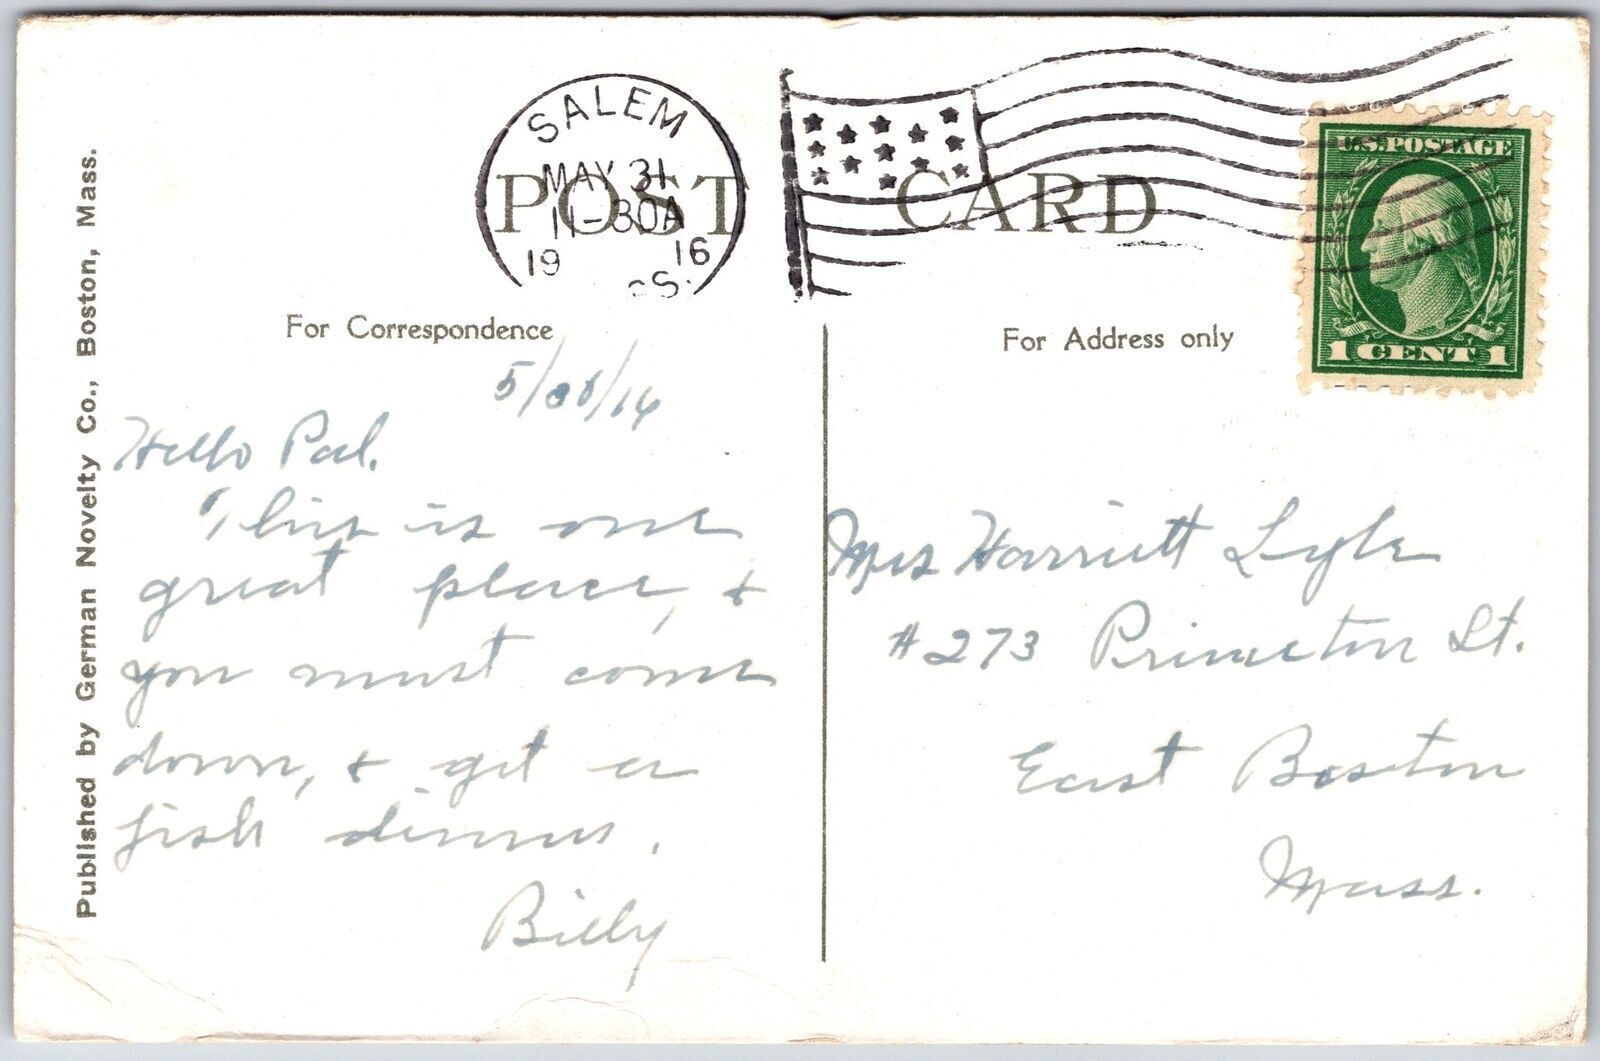 SALEM
MAY 31
11-30A
19 16
POST CARD
U.S.POSTAGE
1 CENT 1
For Correspondence
For Address only
Published by German Novelty Co., Boston, Mass.
Hello Pal.
This is one
great place, &
you must come
down, & get a
fish dinner.
Billy
Mrs Harriett Lyle
# 273 Princeton St.
East Boston
Mass.